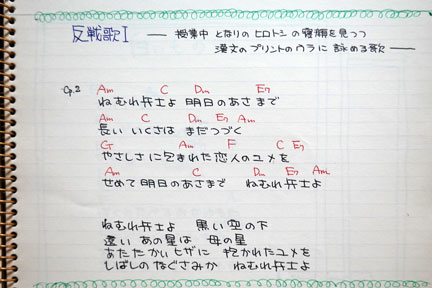 反戦歌I ― 授業中 となりの ヒロトシ の 寝顔を 見つつ
漢文の プリントの ウラ に 詠める 歌 ―
Cp.2 Am C Dm E7
ねむれ 兵士よ 明日の あさ まで
Am C Dm E7 Am
長い いくさは まだ つづく
G Am F C E7
やさしさ に 包まれた 恋人の ユメ を
Am C Dm E7 Am
せめて 明日の あさ まで ねむれ 兵士よ
ねむれ 兵士よ 黒い 空の 下
遠い あの 星は 母の 星
あたたかい ヒザ に 抱かれた ユメを
しばしの なぐさみか ねむれ 兵士よ